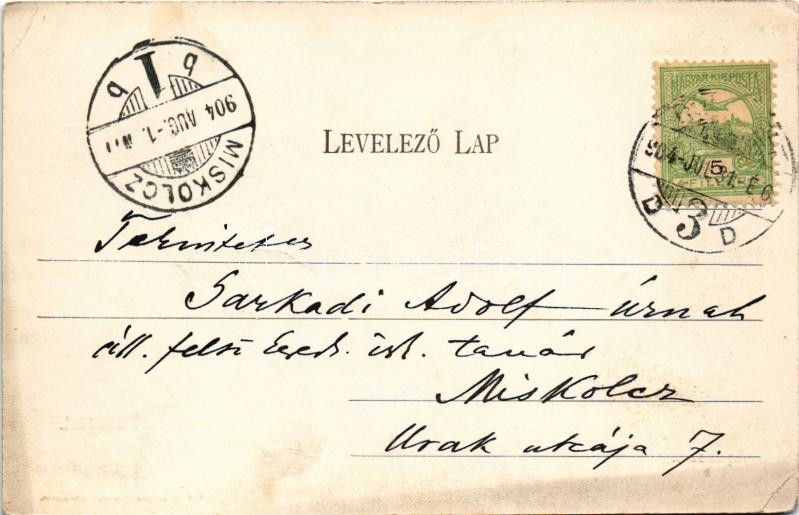 b 1 b
904 AUG.-1. N.
MISKOLCZ
LEVELEZŐ LAP
MAGYAR KIR. POSTA
5
904-JUL.31.-E 6
D 3 D
Sarkadi Adolf úrnak
áll. felső keresk. isk. tanár
Miskolcz
Urak utczája 7.